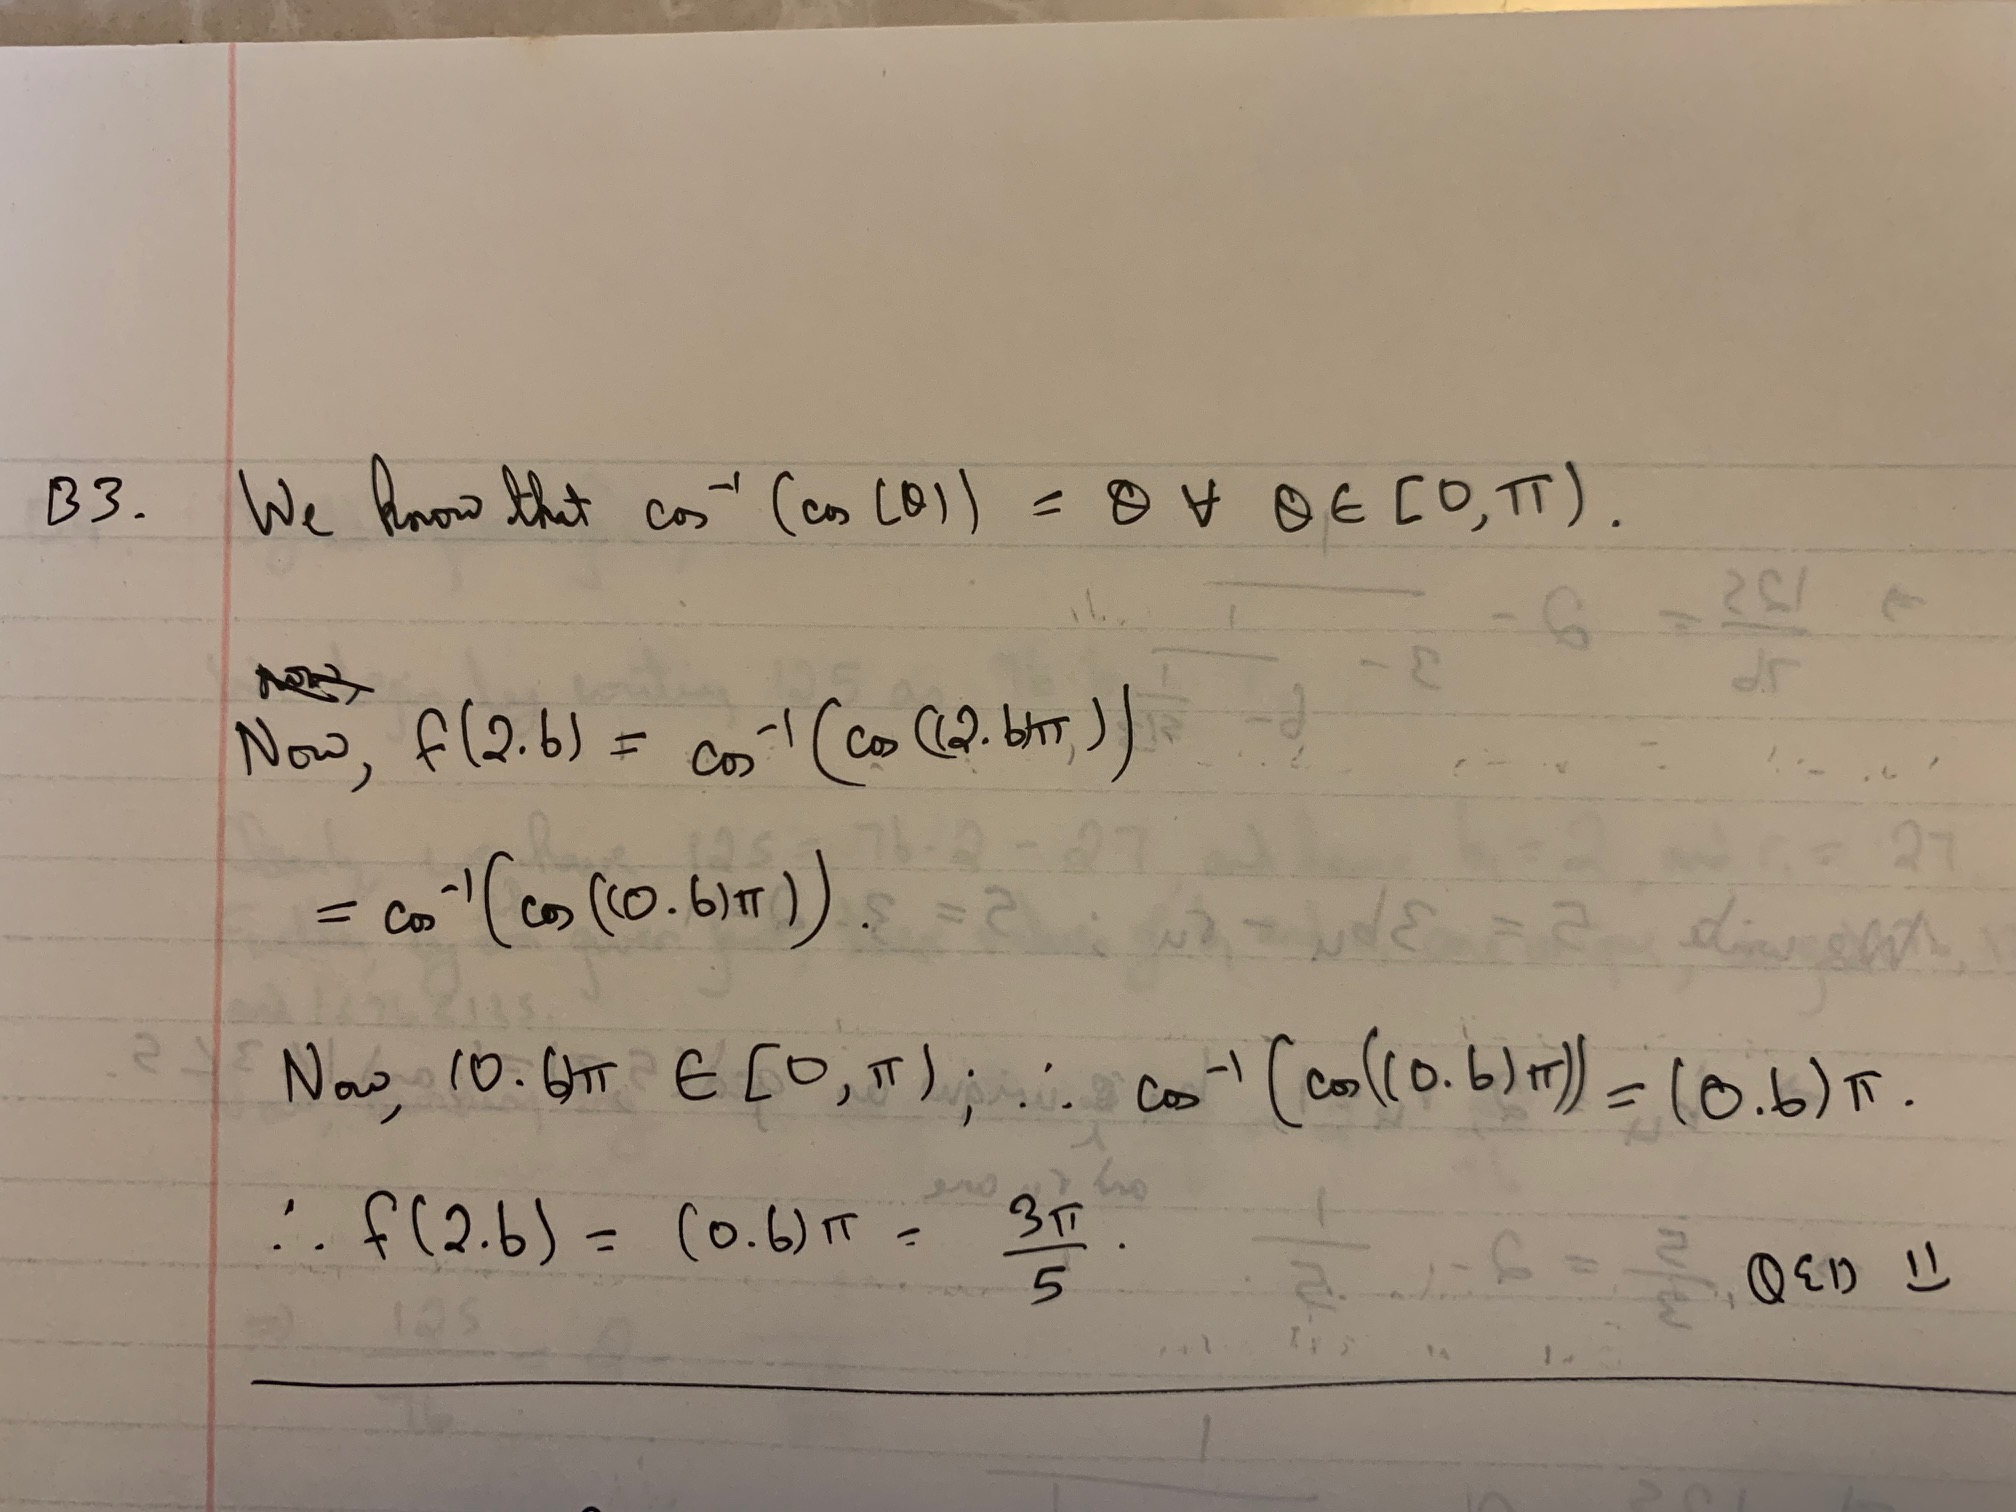 B3. We know that cos⁻¹(cos(θ)) = θ ∀ θ ∈ [0, π).
Now, f(2.6) = cos⁻¹(cos((2.6)π))
= cos⁻¹(cos((0.6)π)).
Now, (0.6)π ∈ [0, π), ∴ cos⁻¹(cos((0.6)π)) = (0.6)π.
∴ f(2.6) = (0.6)π = 3π/5. QED